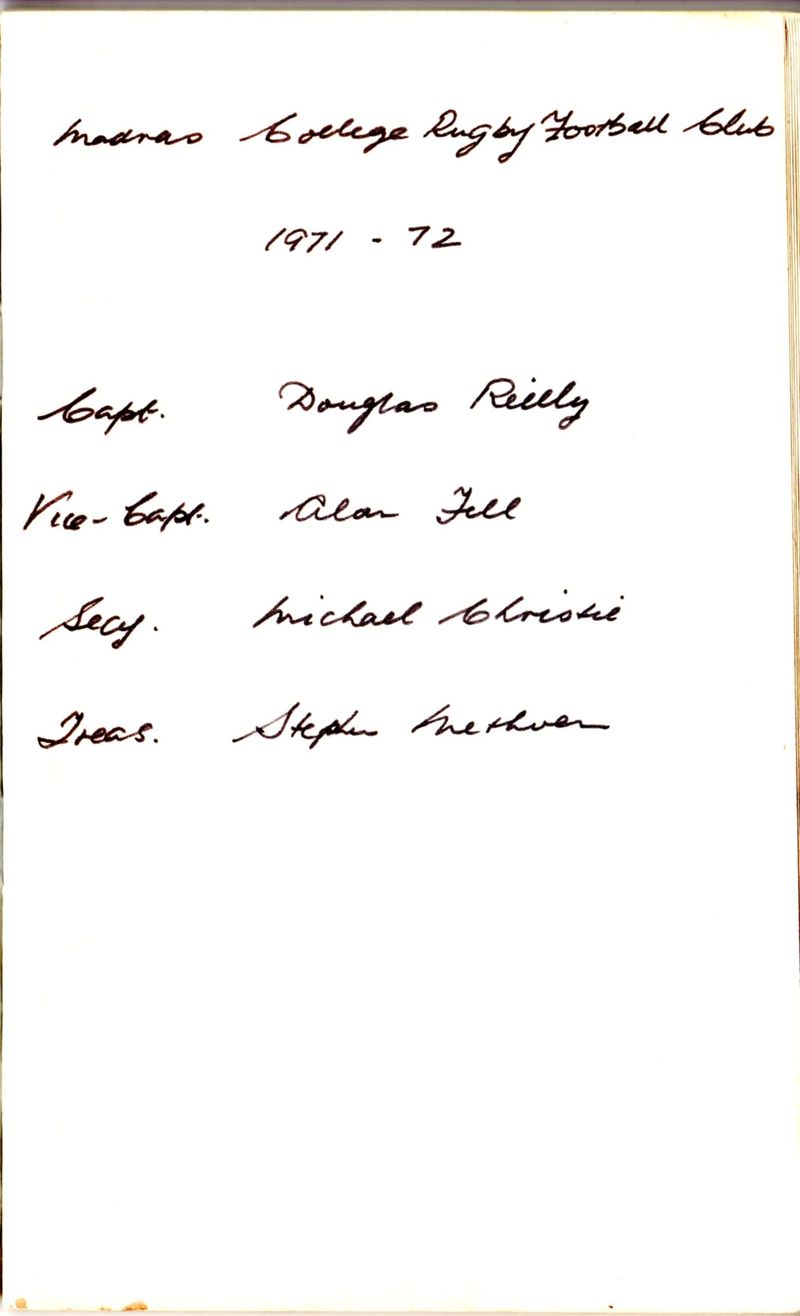 Madras College Rugby Football Club
1971 - 72
Capt. Douglas Reilly
Vice-Capt. Alan Fell
Secy. Michael Christie
Treas. Stephen Methven